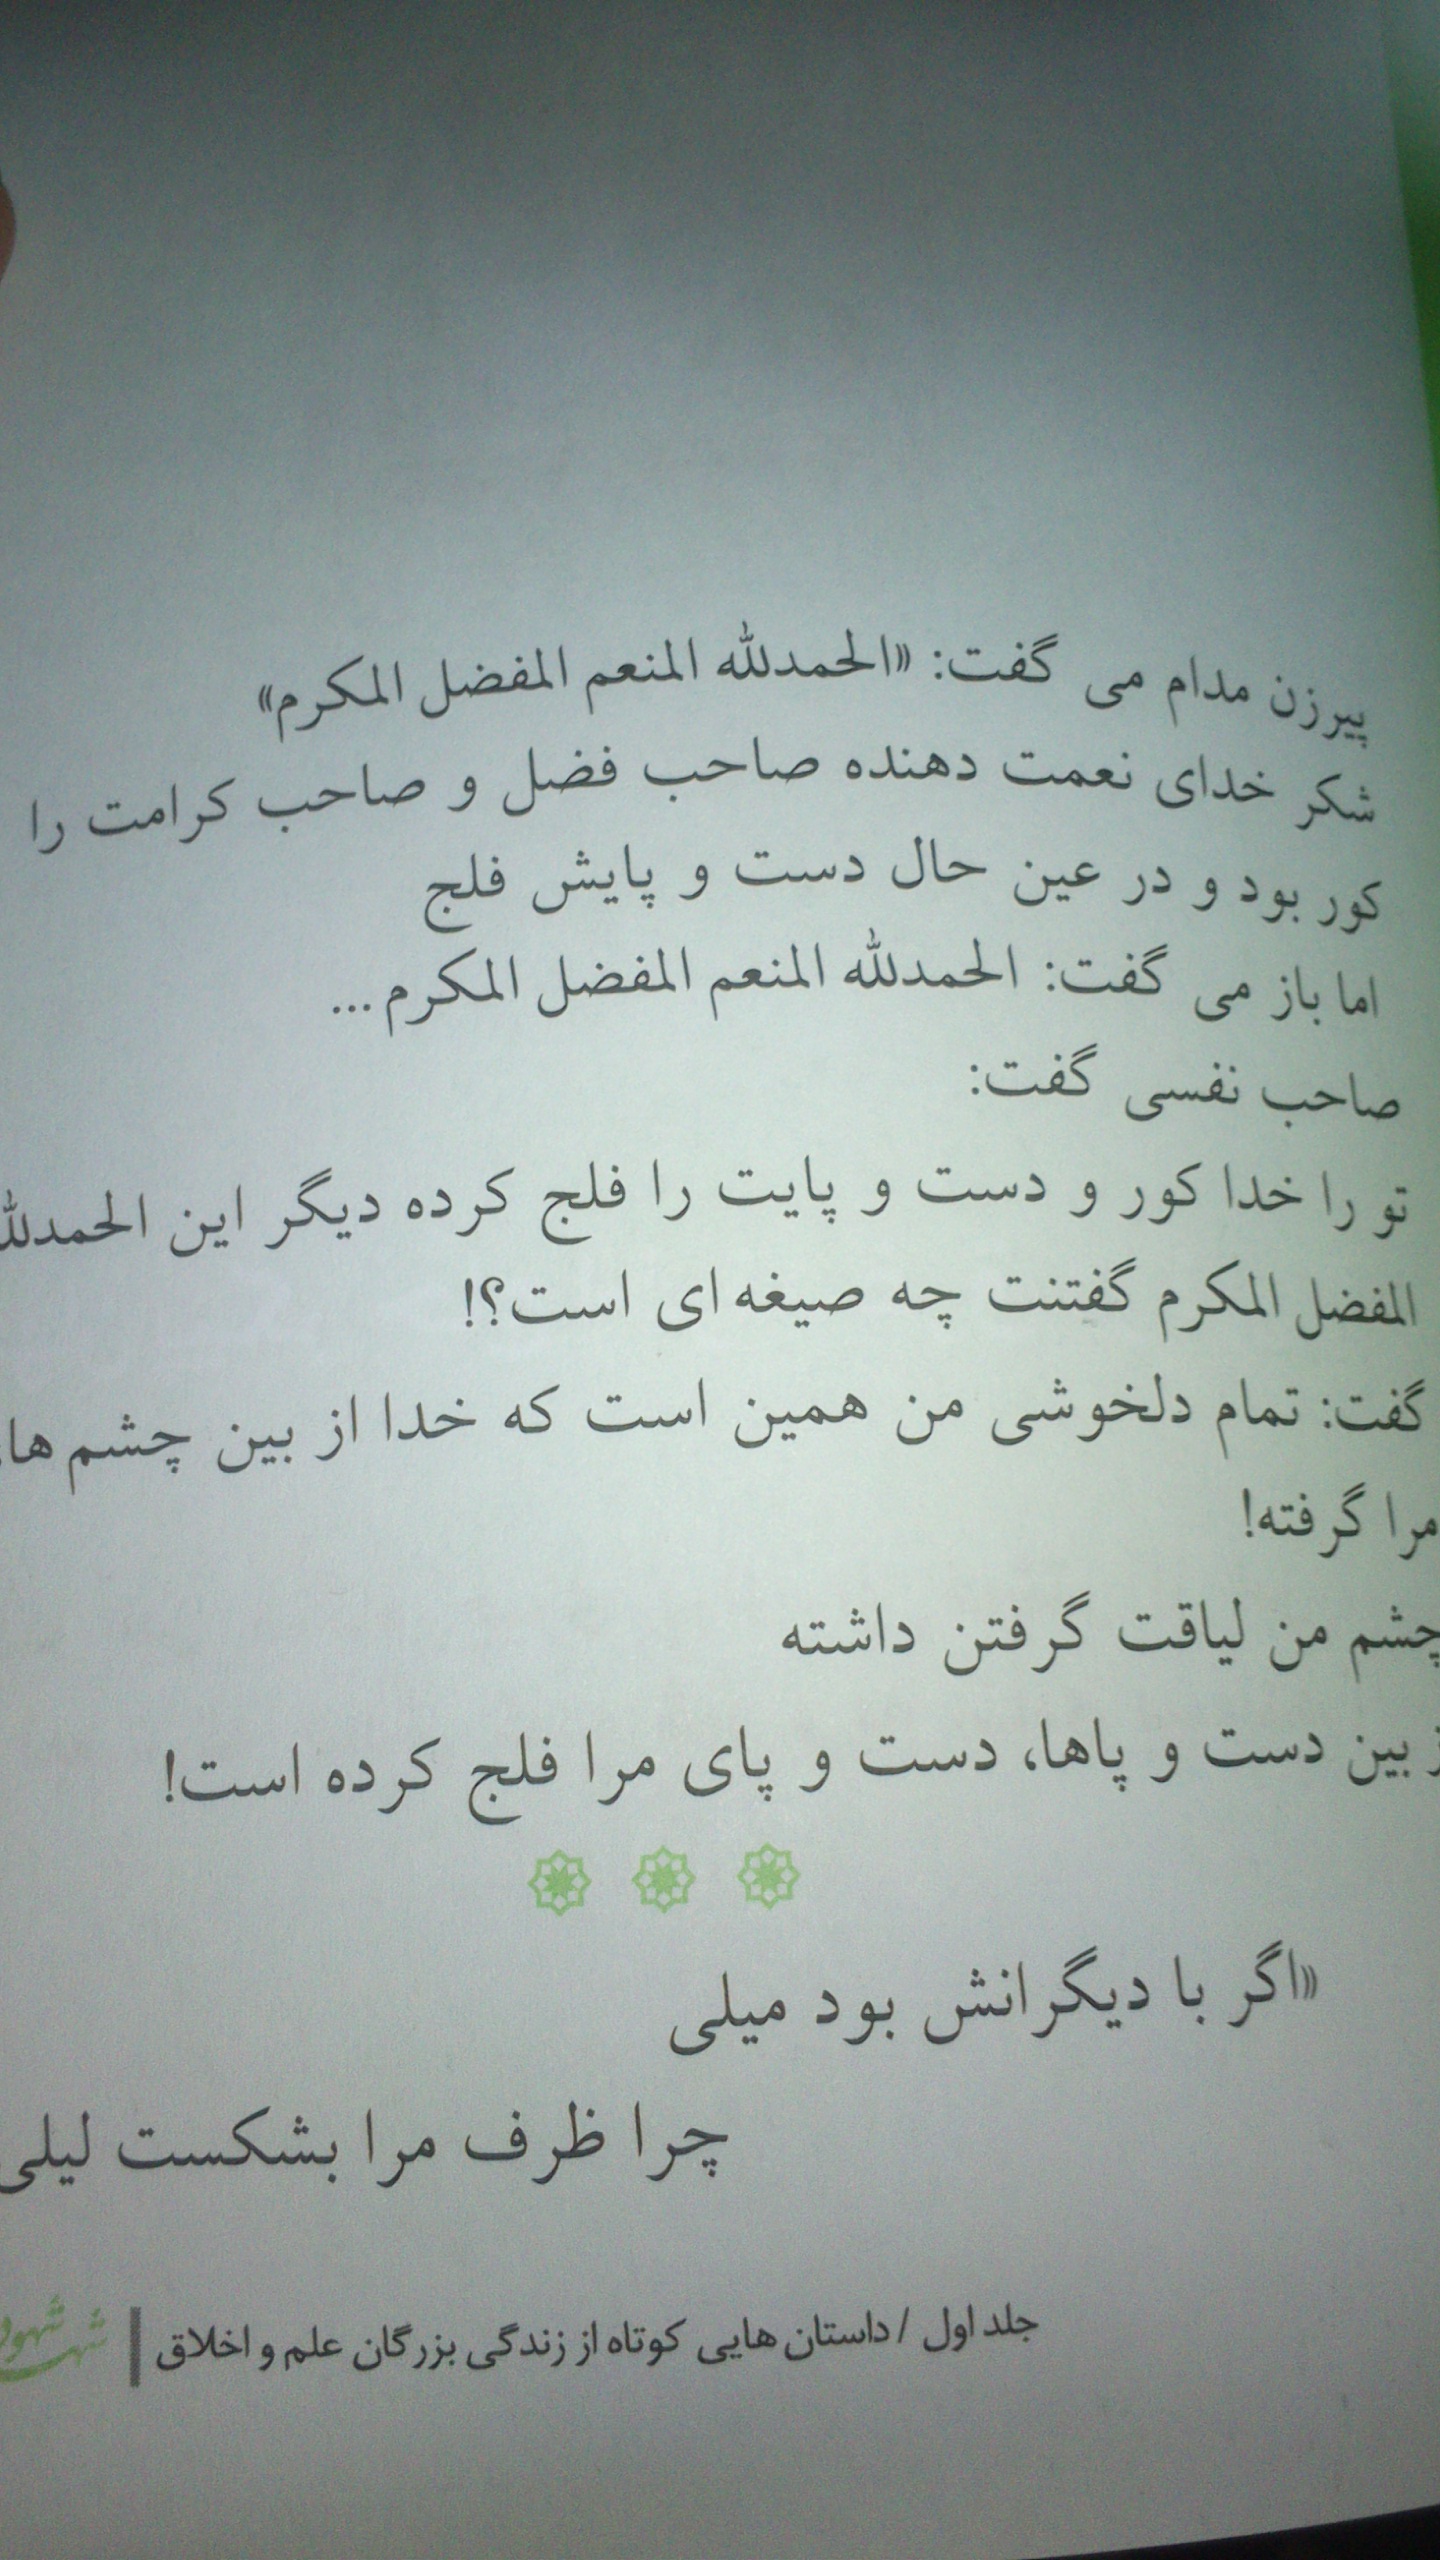 پیرزن مدام می گفت: «الحمدلله المنعم المفضل المکرم»
شکر خدای نعمت دهنده صاحب فضل و صاحب کرامت را
کور بود و در عین حال دست و پایش فلج
اما باز می گفت: الحمدلله المنعم المفضل المکرم...
صاحب نفسی گفت:
تو را خدا کور و دست و پایت را فلج کرده دیگر این الحمدلله
المفضل المکرم گفتنت چه صیغه ای است؟!
گفت: تمام دلخوشی من همین است که خدا از بین چشم ها
مرا گرفته!
چشم من لیاقت گرفتن داشته
بین دست و پاها، دست و پای مرا فلج کرده است!
«اگر با دیگرانش بود میلی
چرا ظرف مرا بشکست لیلی
جلد اول / داستان هایی کوتاه از زندگی بزرگان علم و اخلاق